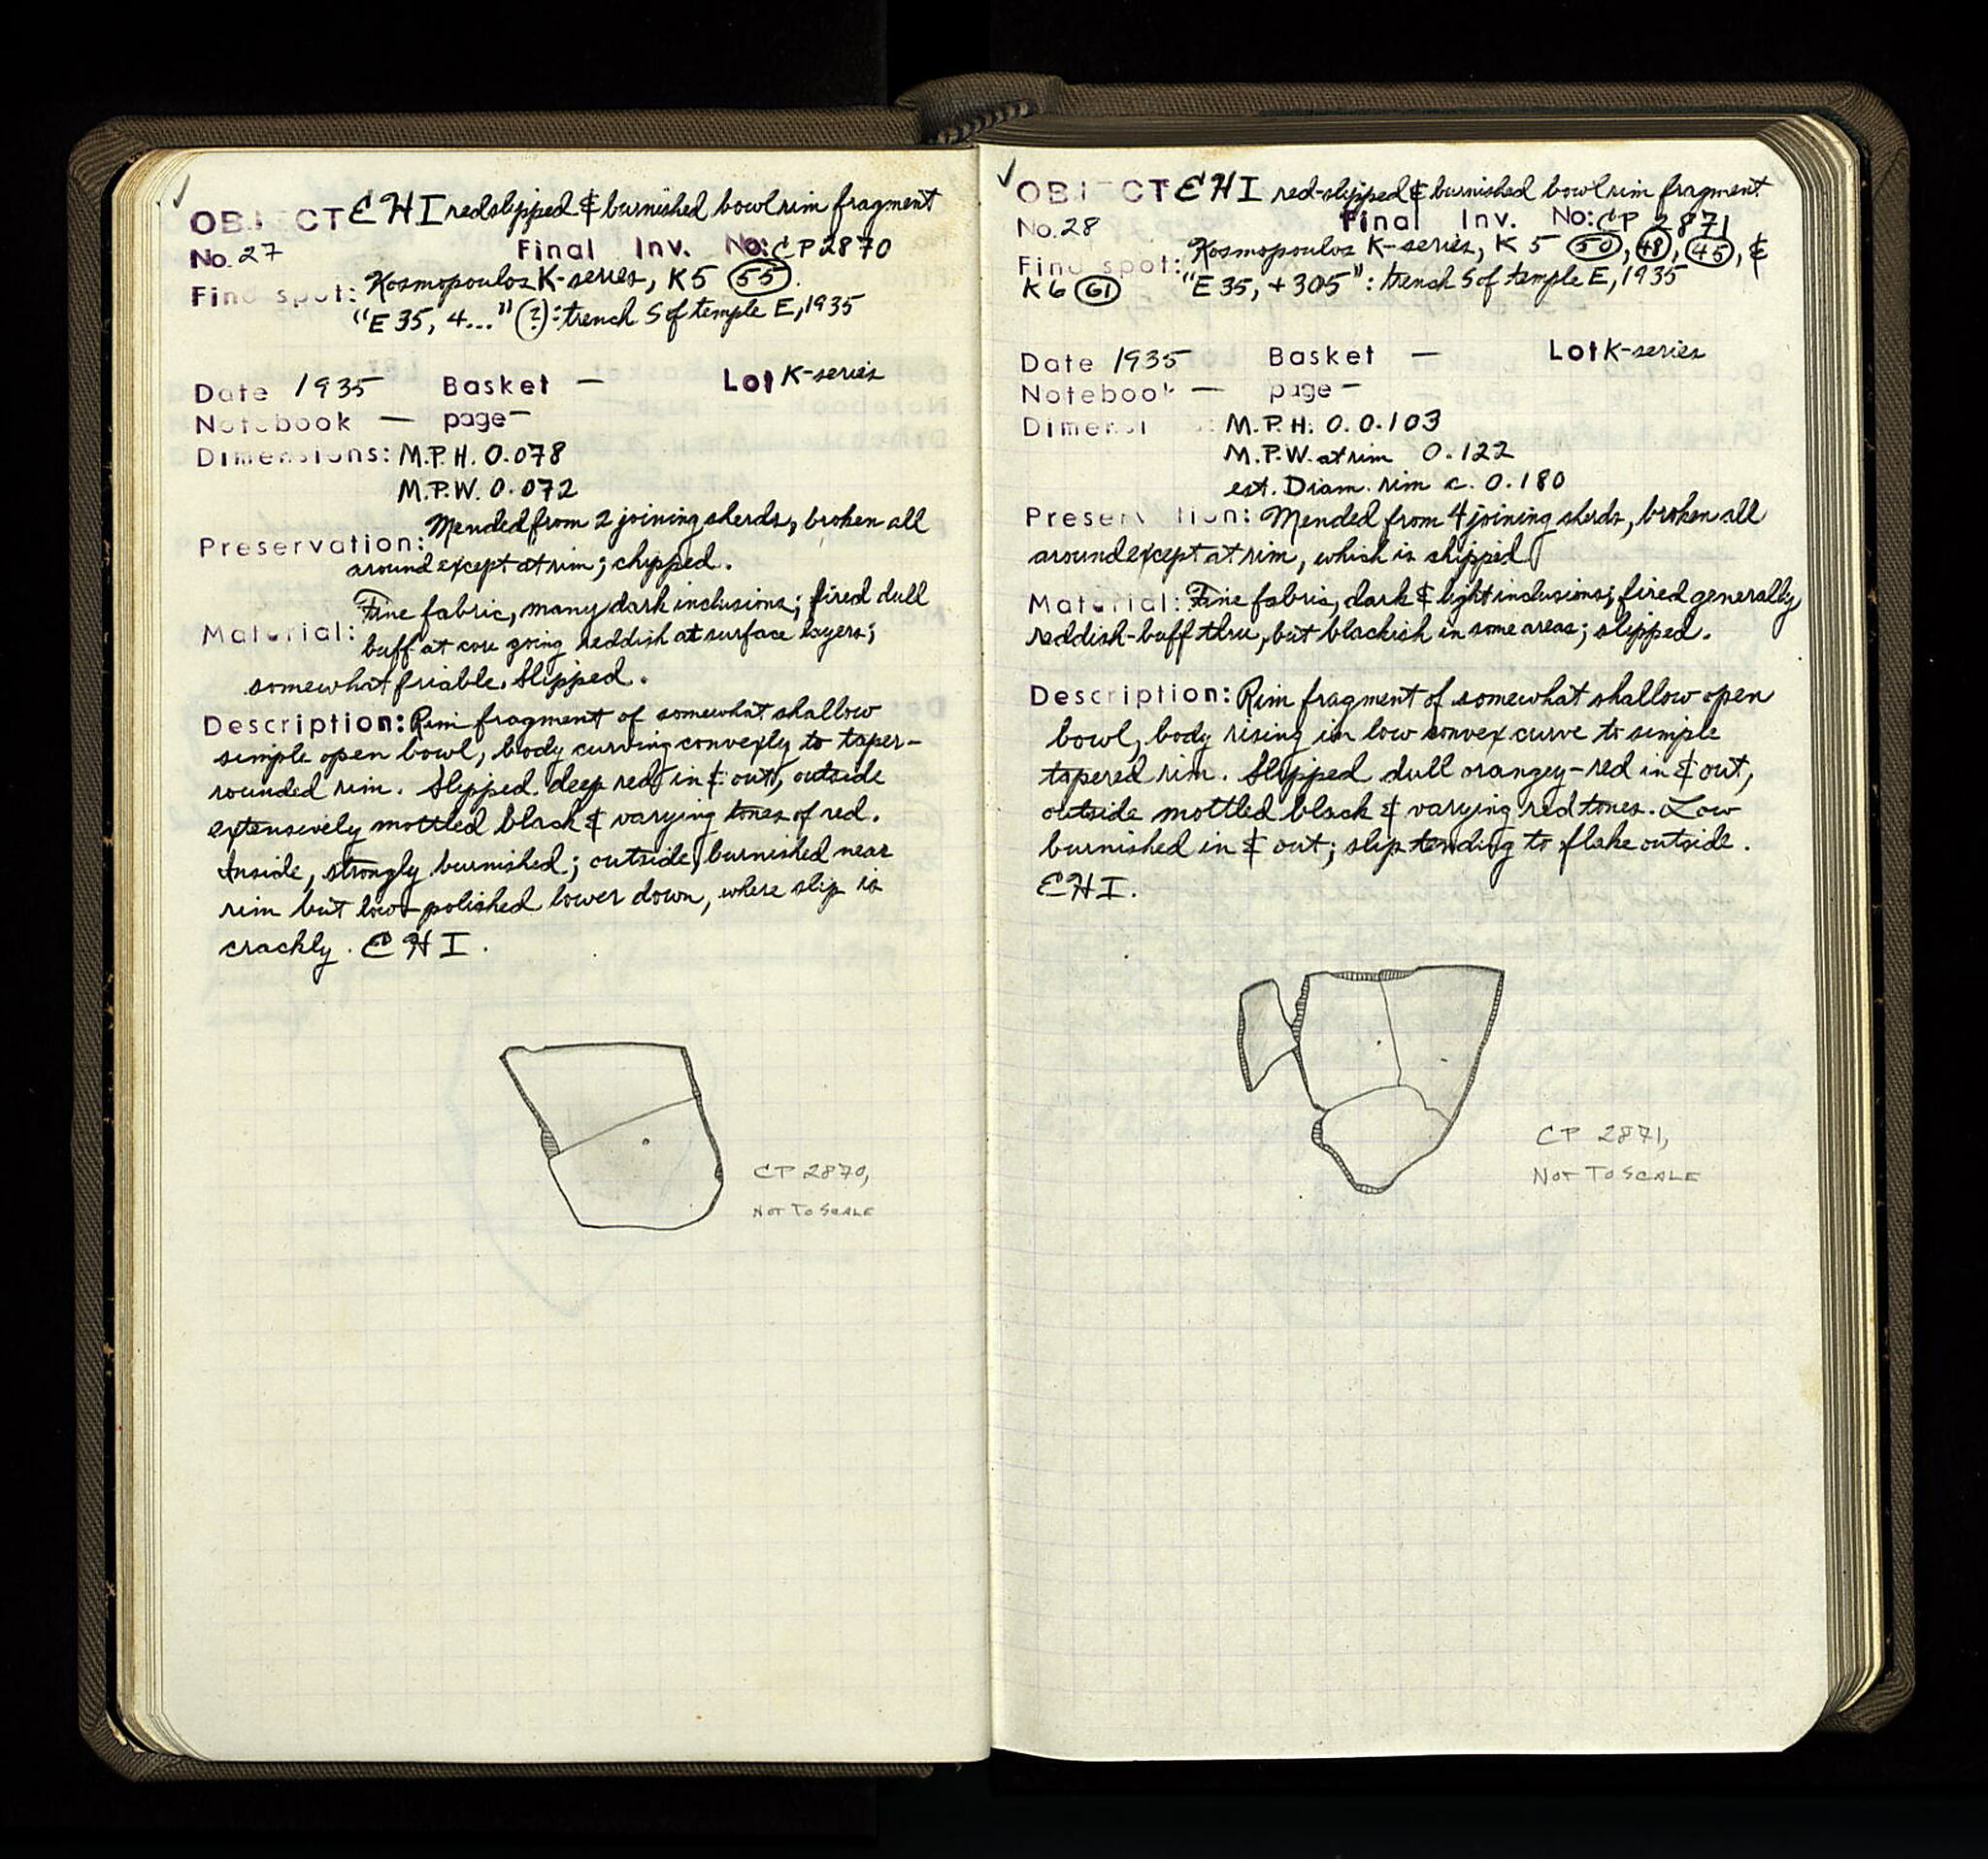 ✓
OBJECT EHI red slipped & burnished bowl rim fragment
No. 27 Final Inv. No: CP 2870
Find spot: Kosmopoulos K-series, K5 (55).
"E 35, 4..." (?): trench S of temple E, 1935
Date 1935 Basket — Lot K-series
Notebook — page —
Dimensions: M.P.H. 0.078
M.P.W. 0.072
Preservation: Mended from 2 joining sherds, broken all
around except at rim; chipped.
Material: Fine fabric, many dark inclusions; fired dull
buff at core going reddish at surface layers;
somewhat friable. Slipped.
Description: Rim fragment of somewhat shallow
simple open bowl, body curving convexly to taper-
rounded rim. Slipped deep red in & out, outside
extensively mottled black & varying tones of red.
Inside, strongly burnished; outside, burnished near
rim but low-polished lower down, where slip is
crackly. EHI.
CP 2870,
NOT TO SCALE
✓
OBJECT EHI red-slipped & burnished bowl rim fragment
No. 28 Final Inv. No: CP 2871
Find spot: Kosmopoulos K-series, K 5 (50), (48), (45), &
K 6 (61) "E 35, + 305": trench S of temple E, 1935
Date 1935 Basket — Lot K-series
Notebook — page —
Dimensions: M.P.H. 0.0.103
M.P.W. at rim 0.122
est. Diam. rim c. 0.180
Preservation: Mended from 4 joining sherds, broken all
around except at rim, which is chipped
Material: Fine fabric, dark & light inclusions; fired generally
reddish-buff thru, but blackish in some areas; slipped.
Description: Rim fragment of somewhat shallow open
bowl, body rising in low convex curve to simple
tapered rim. Slipped dull orangey-red in & out,
outside mottled black & varying red tones. Low
burnished in & out; slip tending to flake outside.
EHI.
CP 2871,
NOT TO SCALE